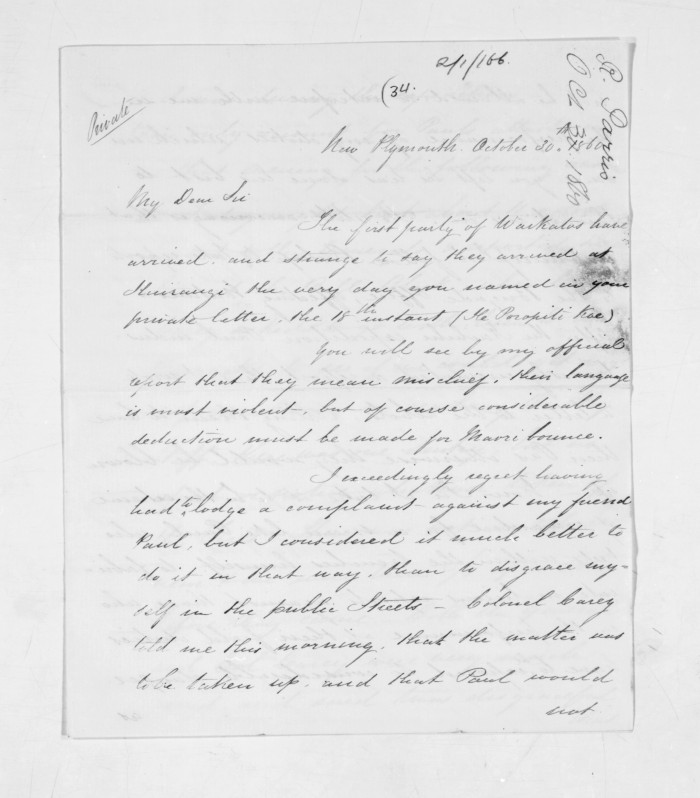 2/1/166.
(34.
Private
R. Parris
Oct 30. 1860
New Plymouth. October 30th 1860
My Dear Sir
The first party of Waikatos have
arrived. and strange to say they arrived at
the very day you named in your
private letter. the 18th instant (He Poropiti Koe)
You will see by my official
report that they mean mischief. their language
is most violent. but of course considerable
deduction must be made for Maori bounce.
I exceedingly regret having
had to lodge a complaint against my friend
Paul, but I considered it much better to
do it in that way, than to disgrace my-
self in the public Streets – Colonel Carey
told me this morning, that the matter was
to be taken up. and that Paul would
not